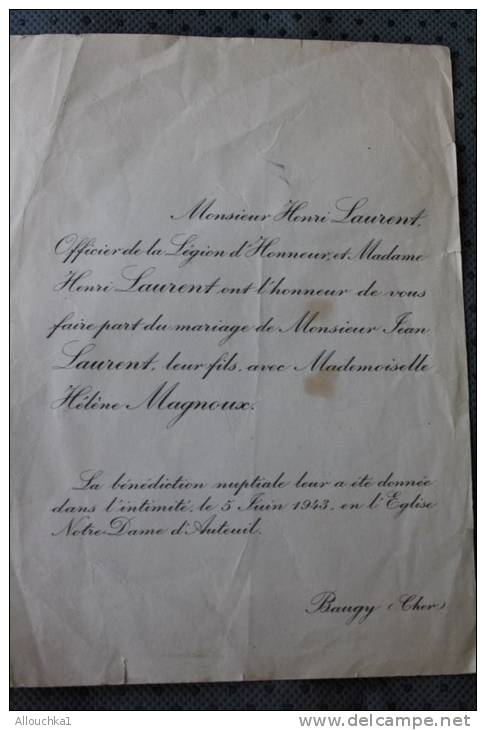 Monsieur Henri Laurent,
Officier de la Légion d'Honneur, et Madame
Henri Laurent ont l'honneur de vous
faire part du mariage de Monsieur Jean
Laurent, leur fils, avec Mademoiselle
Hélène Magnoux.
La bénédiction nuptiale leur a été donnée
dans l'intimité, le 5 Juin 1943, en l'Eglise
Notre-Dame d'Auteuil.
Baugy (Cher)
Allouchka1
www.delcampe.net